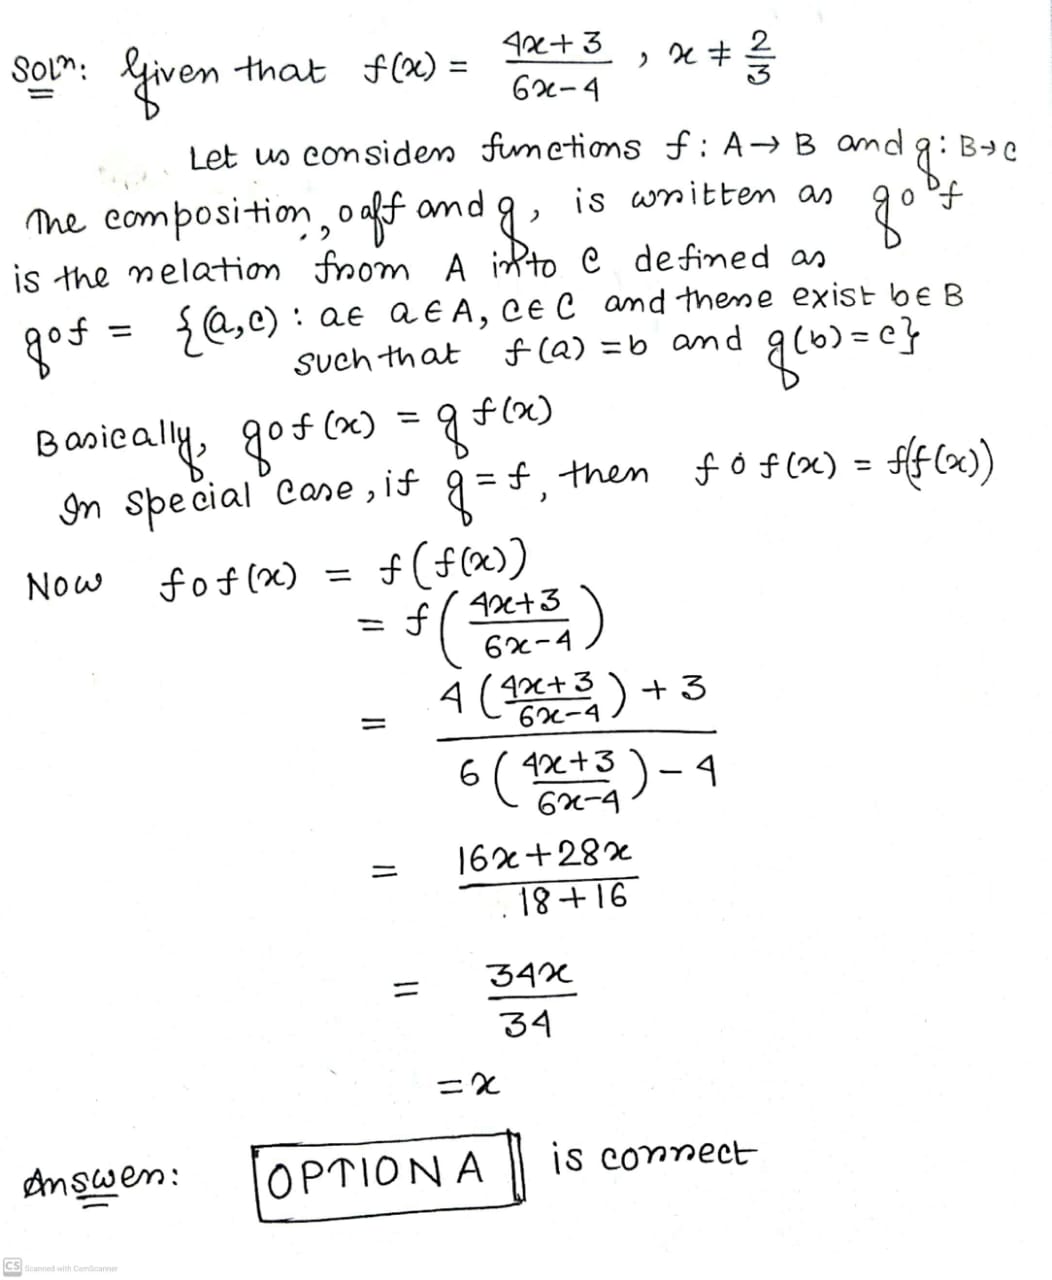 Soln: Given that f(x) = 4x+3 / 6x-4 , x ≠ 2/3
Let us consider functions f: A→B and g: B→C
The composition, o off and g, is written as gof
is the relation from A into C defined as
gof = {(a,c) : aE a∈A, c∈C and there exist b∈B
such that f(a) =b and g(b)=c}
Basically, gof(x) = g f(x)
In special case, if g=f, then f o f(x) = f(f(x))
Now fof(x) = f(f(x))
= f(4x+3 / 6x-4)
= 4(4x+3 / 6x-4) + 3 / 6(4x+3 / 6x-4) - 4
= 16x+28x / 18+16
= 34x / 34
= x
Answer: OPTION A is correct
CS Scanned with CamScanner